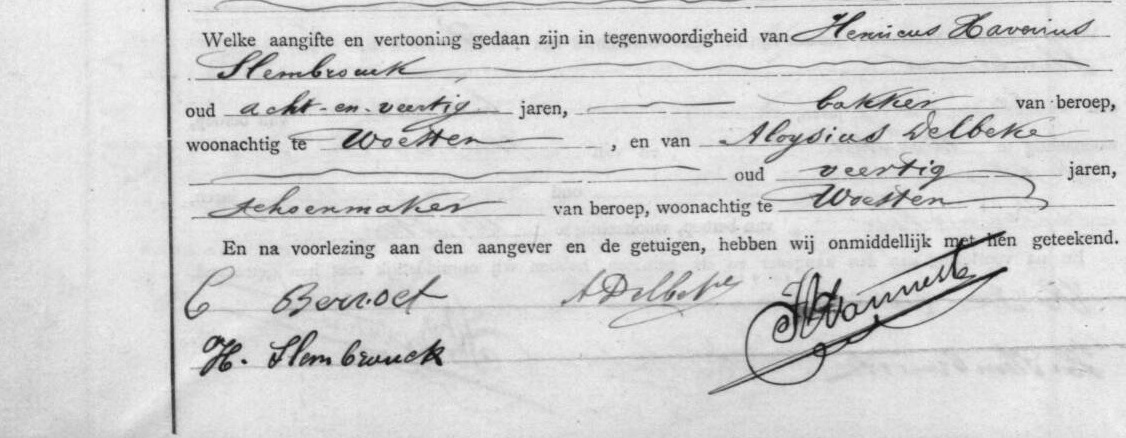 Welke aangifte en vertooning gedaan zijn in tegenwoordigheid van Henricus Xaverius
Slembrouck
oud acht-en-veertig jaren, bakker van beroep,
woonachtig te Woesten, en van Aloysius Delbeke
oud veertig jaren,
schoenmaker van beroep, woonachtig te Woesten
En na voorlezing aan den aangever en de getuigen, hebben wij onmiddellijk met hen geteekend.
C Berroet A Delbeke
H. Slembrouck